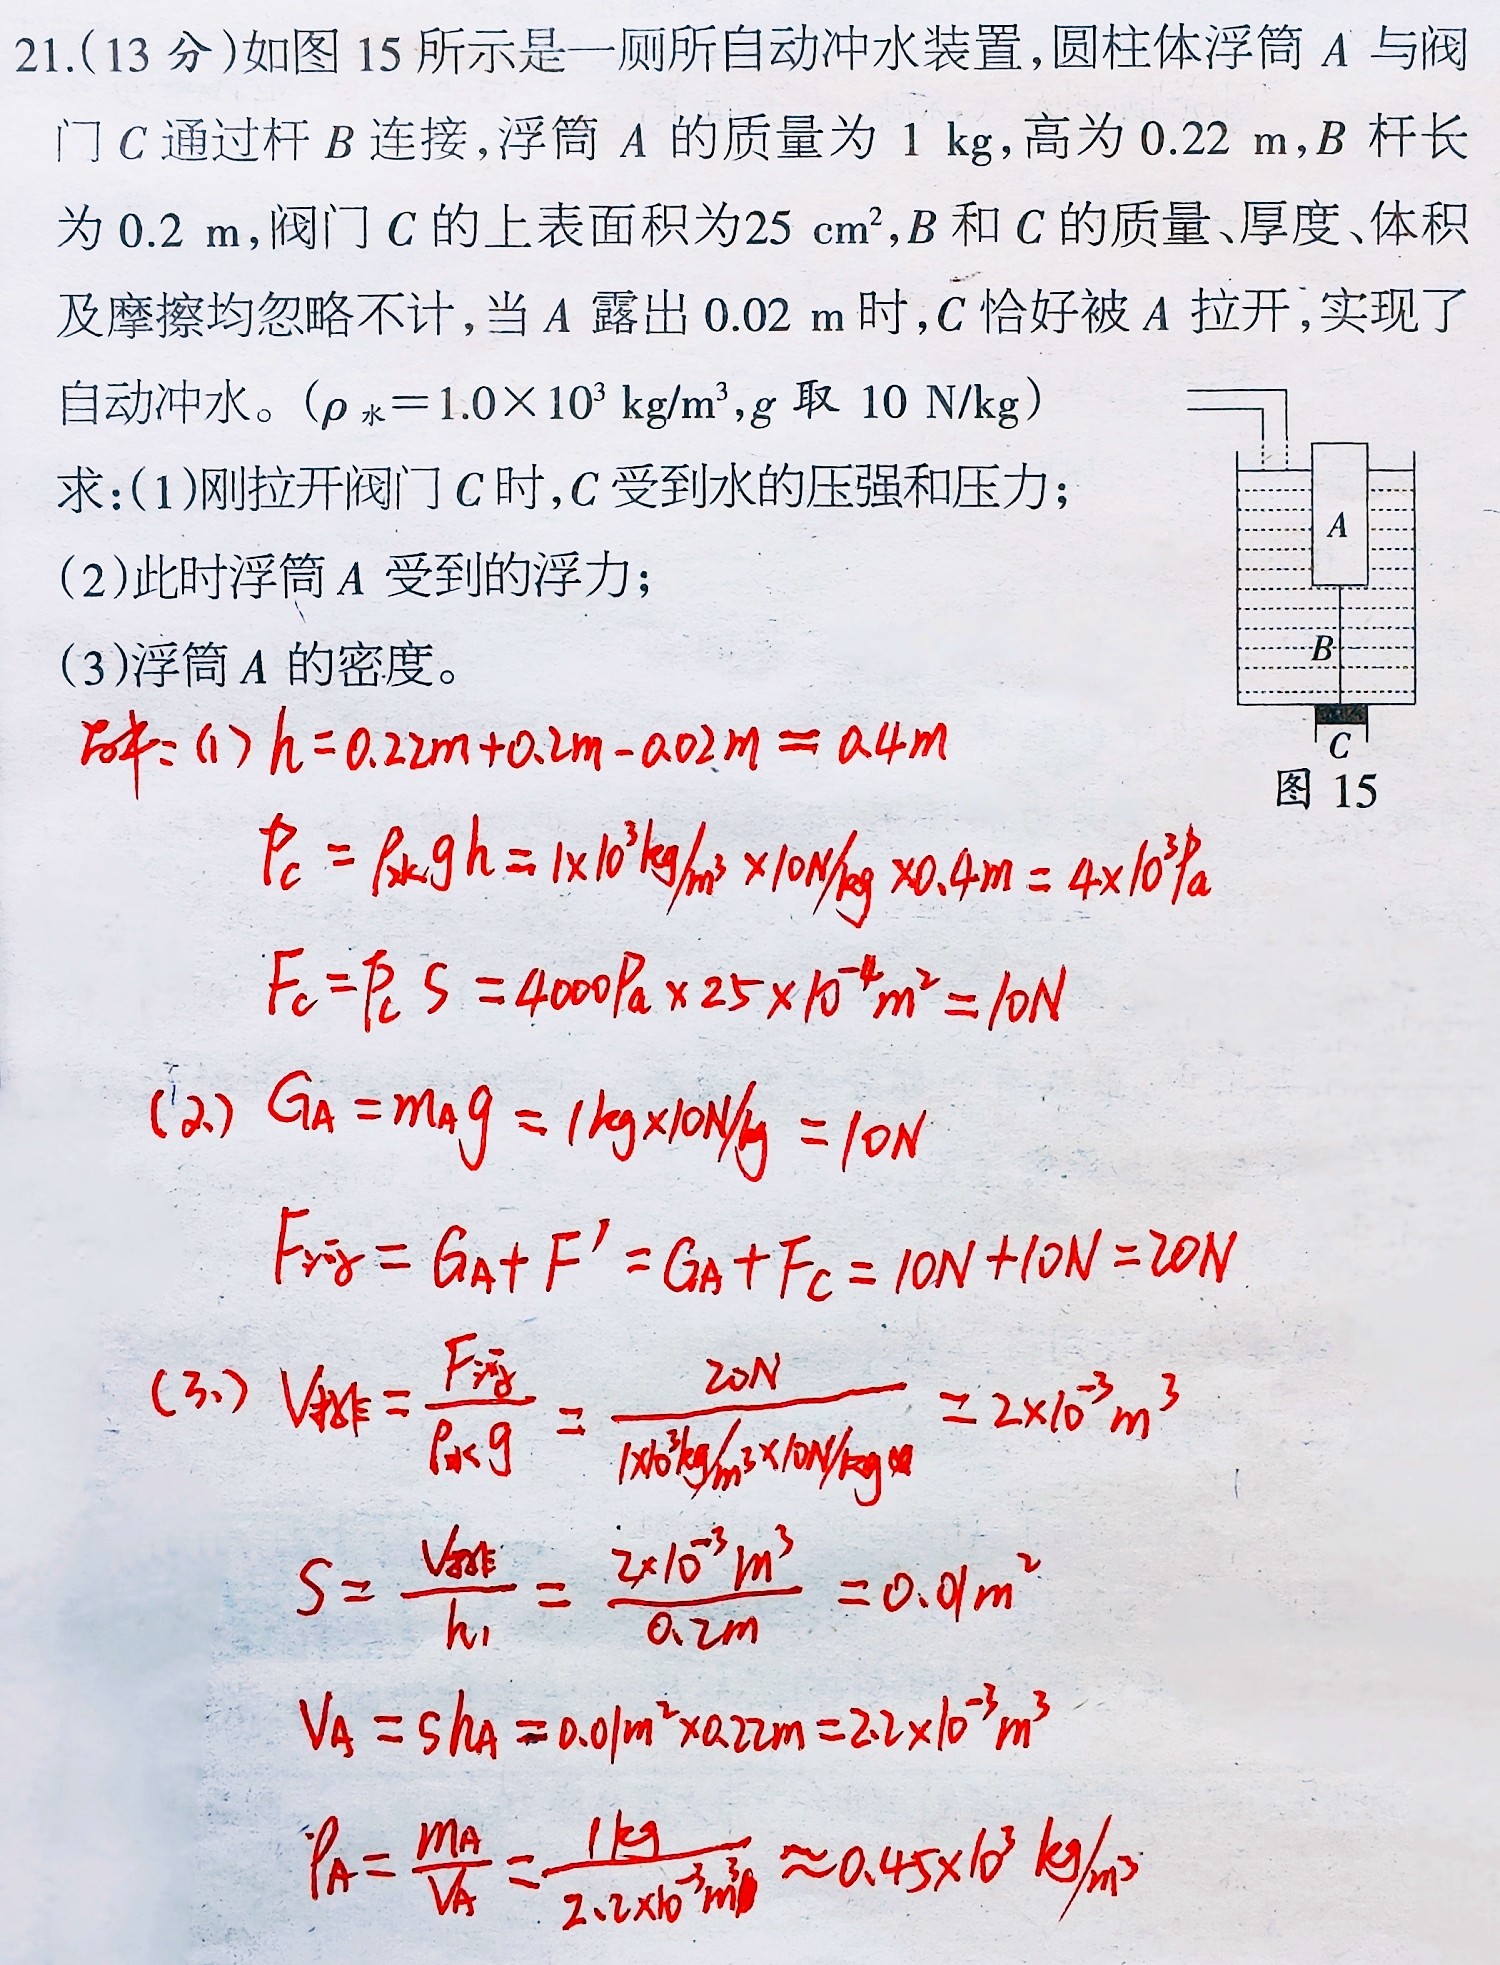 21.(13 分)如图 15 所示是一厕所自动冲水装置,圆柱体浮筒 A 与阀
门 C 通过杆 B 连接,浮筒 A 的质量为 1 kg,高为 0.22 m,B 杆长
为 0.2 m,阀门 C 的上表面积为25 cm²,B 和 C 的质量、厚度、体积
及摩擦均忽略不计,当 A 露出 0.02 m 时,C 恰好被 A 拉开,实现了
自动冲水。(ρ水=1.0×10³ kg/m³,g 取 10 N/kg)
求:(1)刚拉开阀门 C 时,C 受到水的压强和压力;
(2)此时浮筒 A 受到的浮力;
(3)浮筒 A 的密度。
A
B
C
图 15
解:(1) h=0.22m+0.2m-0.02m=0.4m
Pc=ρ水gh=1×10³kg/m³×10N/kg×0.4m=4×10³Pa
Fc=Pc S=4000Pa×25×10⁻⁴m²=10N
(2.) GA=mAg=1kg×10N/kg=10N
F浮=GA+F′=GA+Fc=10N+10N=20N
(3.) V排=F浮/ρ水g=20N/1×10³kg/m³×10N/kg=2×10⁻³m³
S=V排/h₁=2×10⁻³m³/0.2m=0.01m²
VA=ShA=0.01m²×0.22m=2.2×10⁻³m³
ρA=mA/VA=1kg/2.2×10⁻³m³≈0.45×10³kg/m³